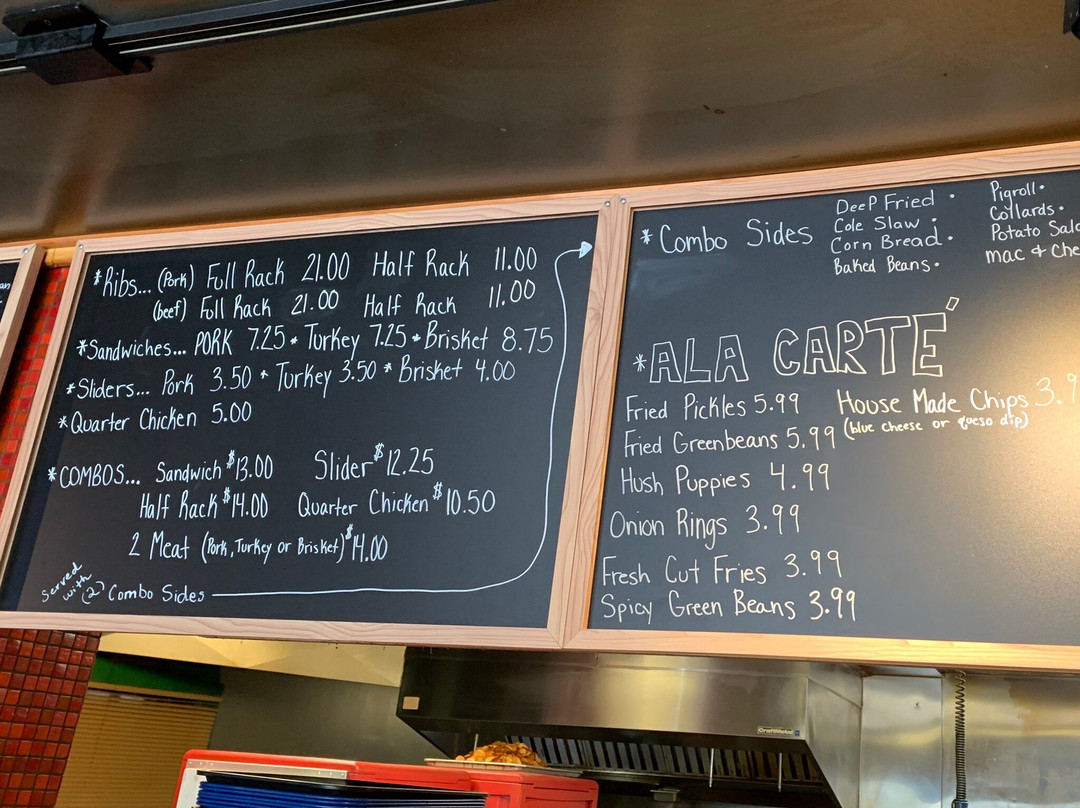 *Ribs... (Pork) Full Rack 21.00 Half Rack 11.00
(beef) Full Rack 21.00 Half Rack 11.00
*Sandwiches... PORK 7.25 * Turkey 7.25 * Brisket 8.75
*Sliders... Pork 3.50 * Turkey 3.50 * Brisket 4.00
*Quarter Chicken 5.00
*COMBOS... Sandwich $13.00 Slider $12.25
Half Rack $14.00 Quarter Chicken $10.50
2 Meat (Pork, Turkey or Brisket) $14.00
Served with (2) Combo Sides
*Combo Sides
DeeP Fried •
Cole Slaw •
Corn Bread •
Baked Beans •
Pigroll •
Collards •
Potato
mac &
*ALA CARTÉ
Fried Pickles 5.99
Fried Greenbeans 5.99
Hush Puppies 4.99
Onion Rings 3.99
Fresh Cut Fries 3.99
Spicy Green Beans 3.99
House Made Chips
(blue cheese or queso dip)